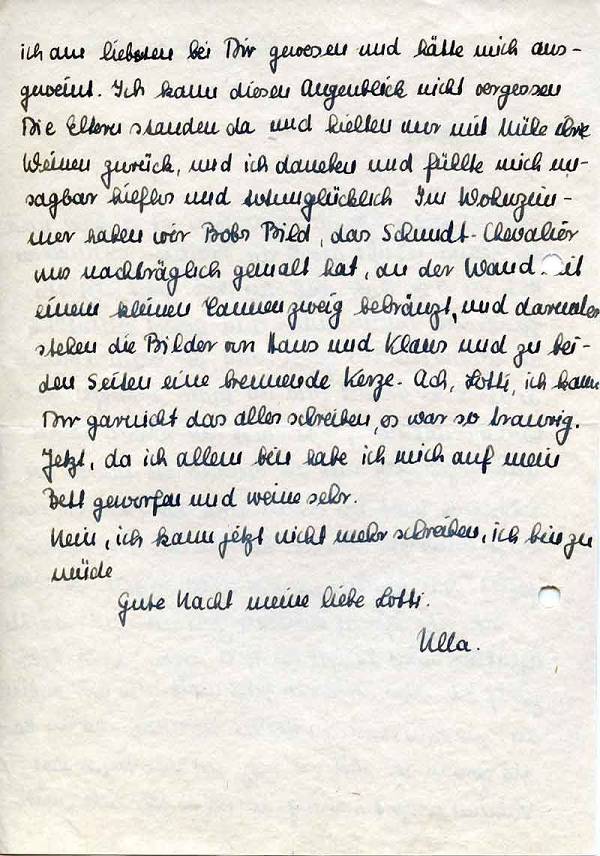 ich am liebsten bei Dir gewesen und hätte mich aus-
geweint. Ich kann diesen Augenblick nicht vergessen
Die Eltern standen da und hielten nur mit Mühe ihre
Weinen zurück, und ich daneben und füllte mich un-
sagbar hieflos und totunglücklich Im Wohnzim-
mer haben wir Bobs Bild, das Schmdt-Chevalier
uns nachträglich gemalt hat, an der Wand mit
einem kleinen Tannenzweig bekränzt, und darunter
stehen die Bilder von Hans und Klaus und zu bei-
den Seiten eine brennende Kerze. Ach, Lotti, ich kann
Dir garnicht das alles schreiben, es war so traurig.
Jetzt, da ich allein bin habe ich mich auf mein
Bett geworfen und weine sehr.
Nein, ich kann jetzt nicht mehr schreiben, ich bin zu
müde
Gute Nacht meine liebe Lotti.
Ulla.